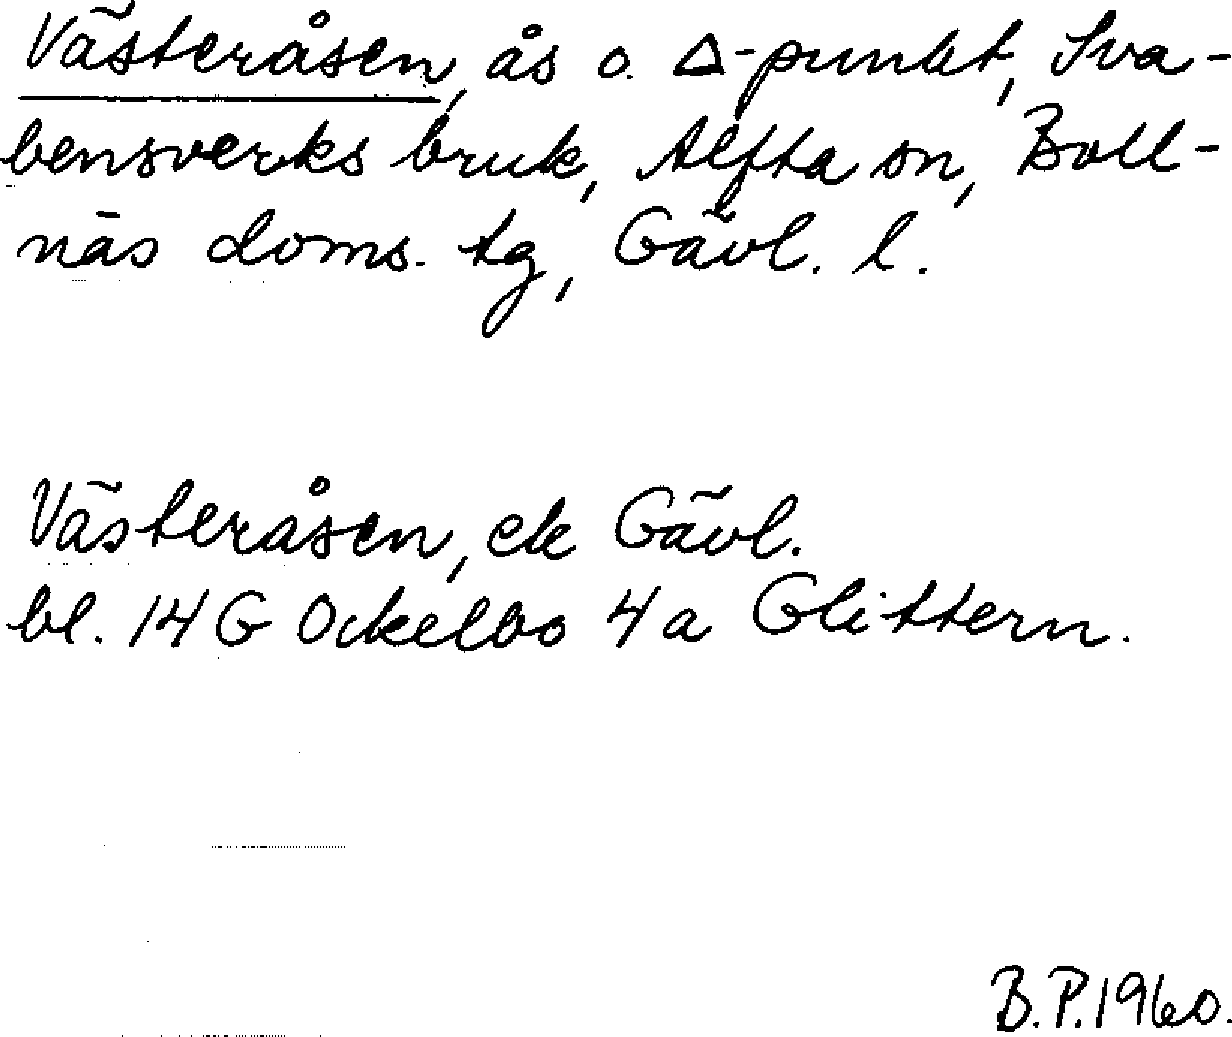 Västeråsen, ås o. Δ-punkt, Sva-
bensverks bruk, Alfta sn, Boll-
näs doms. tg, Gävl. l.
Västeråsen, ek Gävl.
bl. 14 G Ockelbo 4 a Glittern.
B.P. 1960.